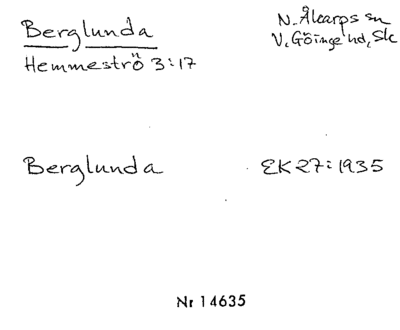 Berglunda
N. Åkarps sn
V. Göinge hd, Sk
Hemmeströ 3:17
Berglunda
EK 27:1935
Nr 14635